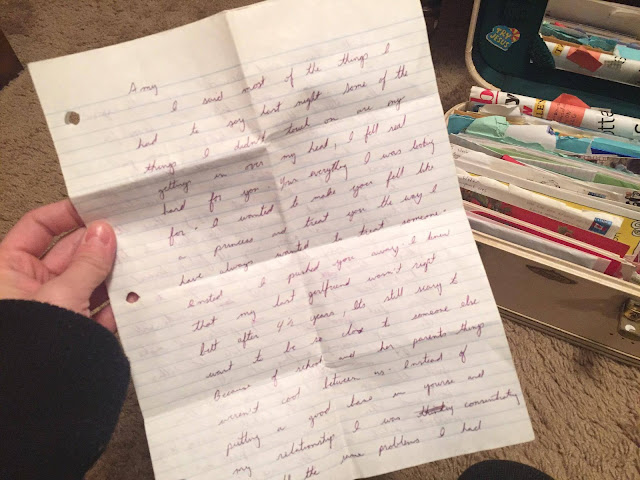 Amy
I said most of the things I
had to say last night some of the
things I didn't touch on are my
getting in over my head, I fell real
hard for you your everything I was looking
for. I wanted to make your fell like
a princess and treat you the way I
have always wanted to treat someone.
Instead I pushed you away I knew
that my last girlfriend wasn't right
but after 4½ years, Its still scary to
want to be so close to someone else
Because of school and her parents things
weren't cool between us. Instead of
putting a good base in yourse and
my relationship I was consintraity
the same problems I had
TRY
JESUS